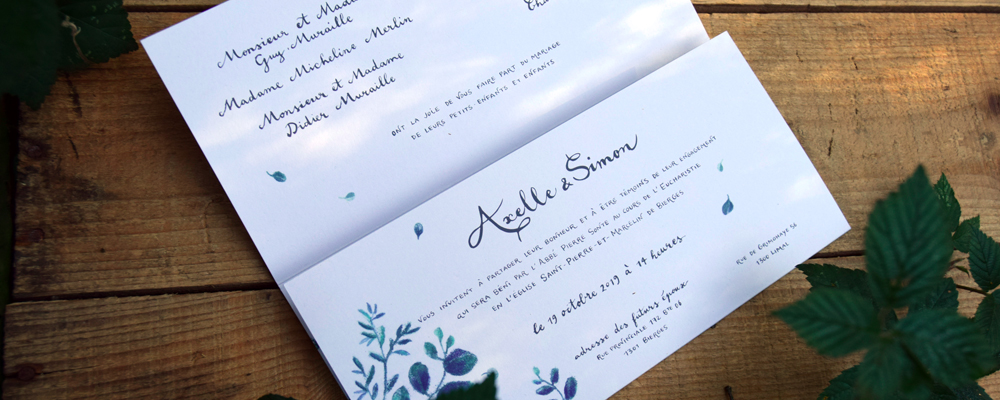 Monsieur et
Guy Muraille
Madame Micheline Merlin
Monsieur et Madame
Didier Muraille
ONT LA JOIE DE VOUS FAIRE PART DU MARIAGE
DE LEURS PETITS-ENFANTS ET ENFANTS
Axelle & Simon
VOUS INVITENT À PARTAGER LEUR BONHEUR ET À ÊTRE TÉMOINS DE LEUR ENGAGEMENT
QUI SERA BÉNI PAR L'ABBÉ PIERRE AU COURS DE L'EUCHARISTIE
EN L'ÉGLISE SAINT-PIERRE-ET-MARCELIN DE BIERGES
le 19 octobre 2019 à 14 heures
adresse des futurs époux
RUE PROVINCIALE
1301 BIERGES
RUE DE
1300 LIMAL